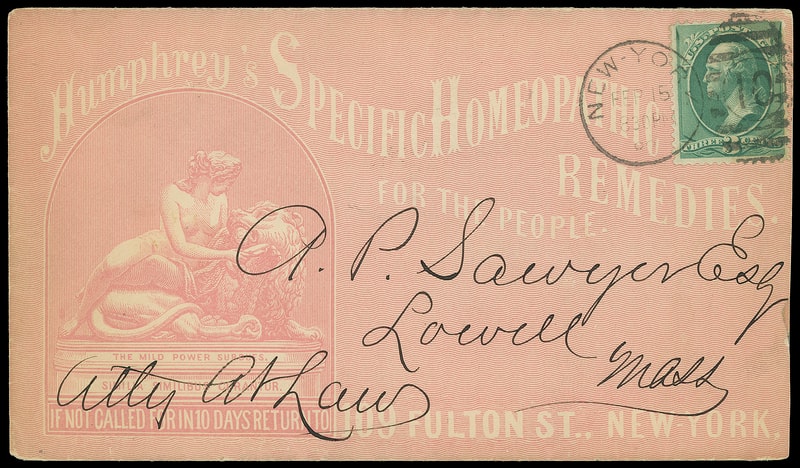 Humphrey's Specific Homeopathic
Remedies.
For the People.
NEW-YO
15
A. P. Sawyer Esq
Lowell
Mass
Atty At Law
THE MILD POWER SUBDUES.
SIMILIA SIMILIBUS CURANTUR.
IF NOT CALLED FOR IN 10 DAYS RETURN TO 109 FULTON ST., NEW-YORK,